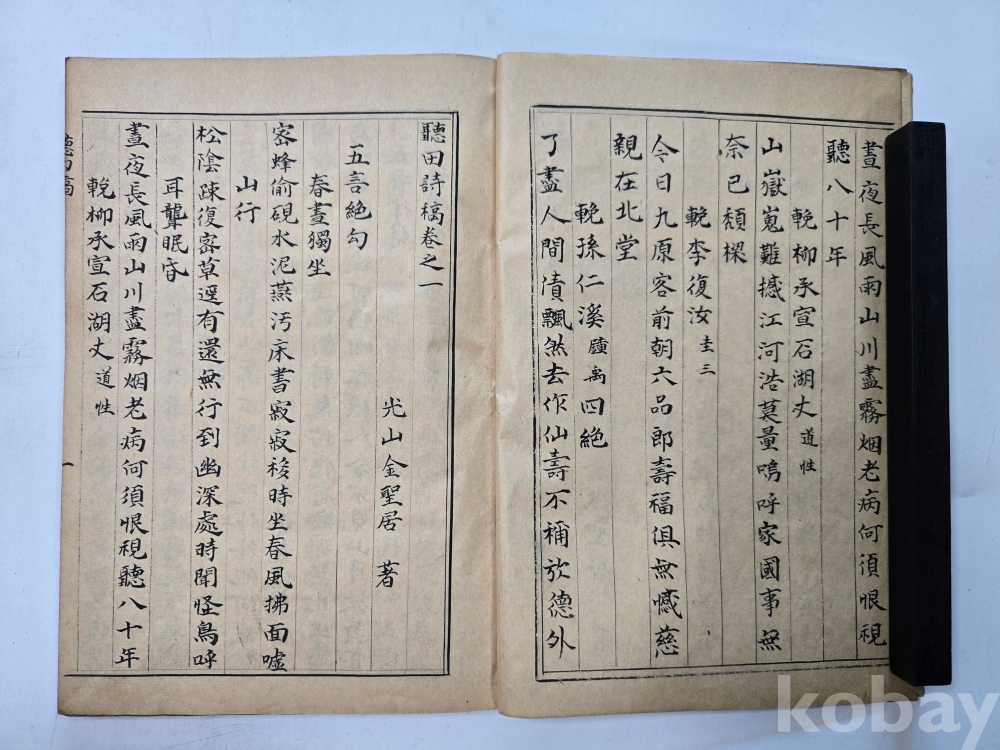 晝夜長風雨山川盡霧烟老病何須恨視
聽八十年
輓柳承宣石湖丈道性
山嶽嵬難撼江河浩莫量嗚呼家國事無
奈已頹樑
輓李復汝圭三
今日九原客前朝六品郎壽福俱無憾慈
親在北堂
輓孫仁溪禹四絶
了盡人間債飄然去作仙壽不補於德外
聽田詩稿卷之一
光山金聖居 著
五言絶句
春晝獨坐
密蜂偷硯水泥燕汚床書寂寂移時坐春風拂面噓
山行
松陰疎復密草逕有還無行到幽深處時聞怪鳥呼
耳聾眠昏
晝夜長風雨山川盡霧烟老病何須恨視聽八十年
輓柳承宣石湖丈道性
一
kobay